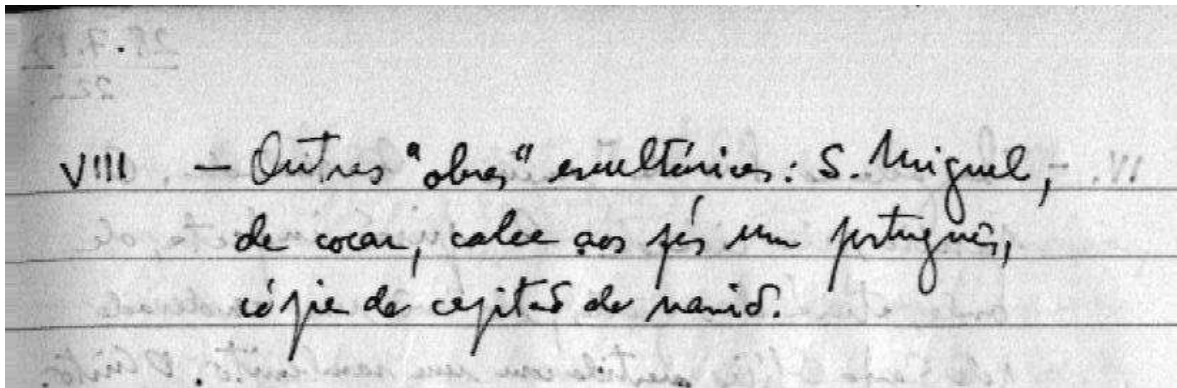 VIII – Outras "obras" escultóricas: S. Miguel,
de cocar, calca aos pés um português,
cópia do capitão do navio.